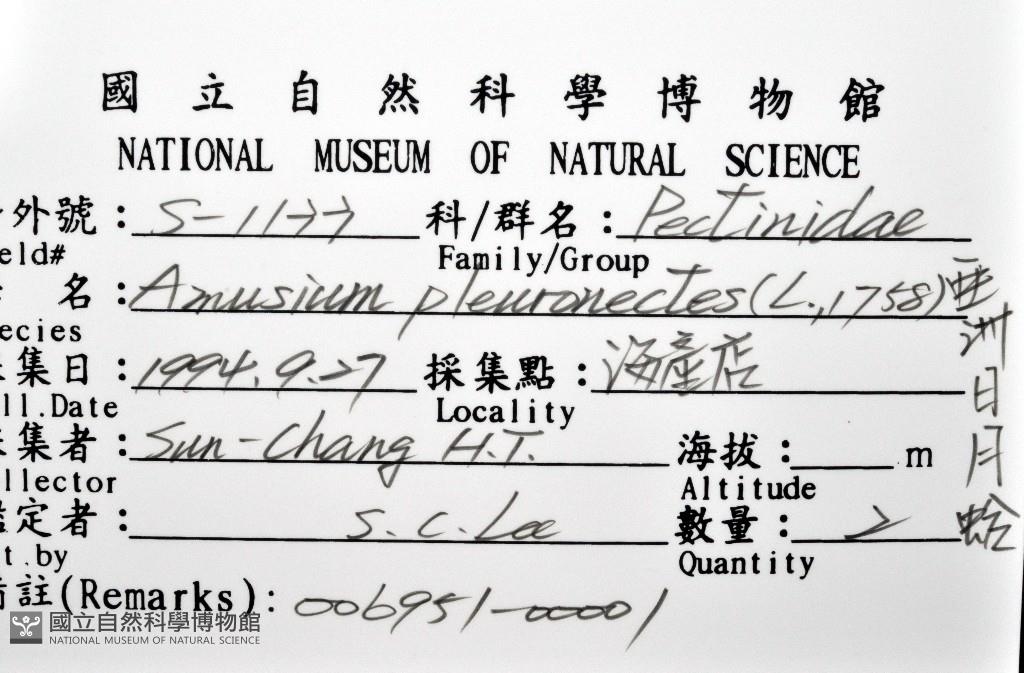 國立自然科學博物館
NATIONAL MUSEUM OF NATURAL SCIENCE
外號：S-1177 科/群名：Pectinidae
eld# Family/Group
名：Amusium pleuronectes (L., 1758) 亞洲日月蛤
ecies
集日：1994.9.27 採集點：海產店
ll.Date Locality
集者：Sun-Chang H.T. 海拔：m
llector Altitude
定者：S.C. Lee 數量：2
t.by Quantity
註(Remarks)：006951-00001
國立自然科學博物館
NATIONAL MUSEUM OF NATURAL SCIENCE